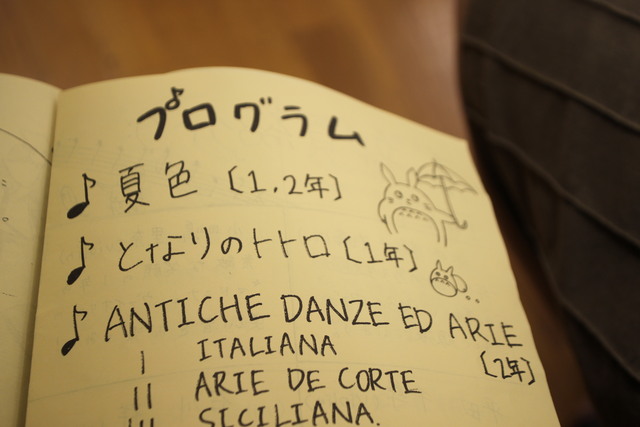 プログラム
♪ 夏色 〔1.2年〕
♪ となりのトトロ〔1年〕
♪ ANTICHE DANZE ED ARIE
〔2年〕
I ITALIANA
II ARIE DE CORTE
III SICILIANA.